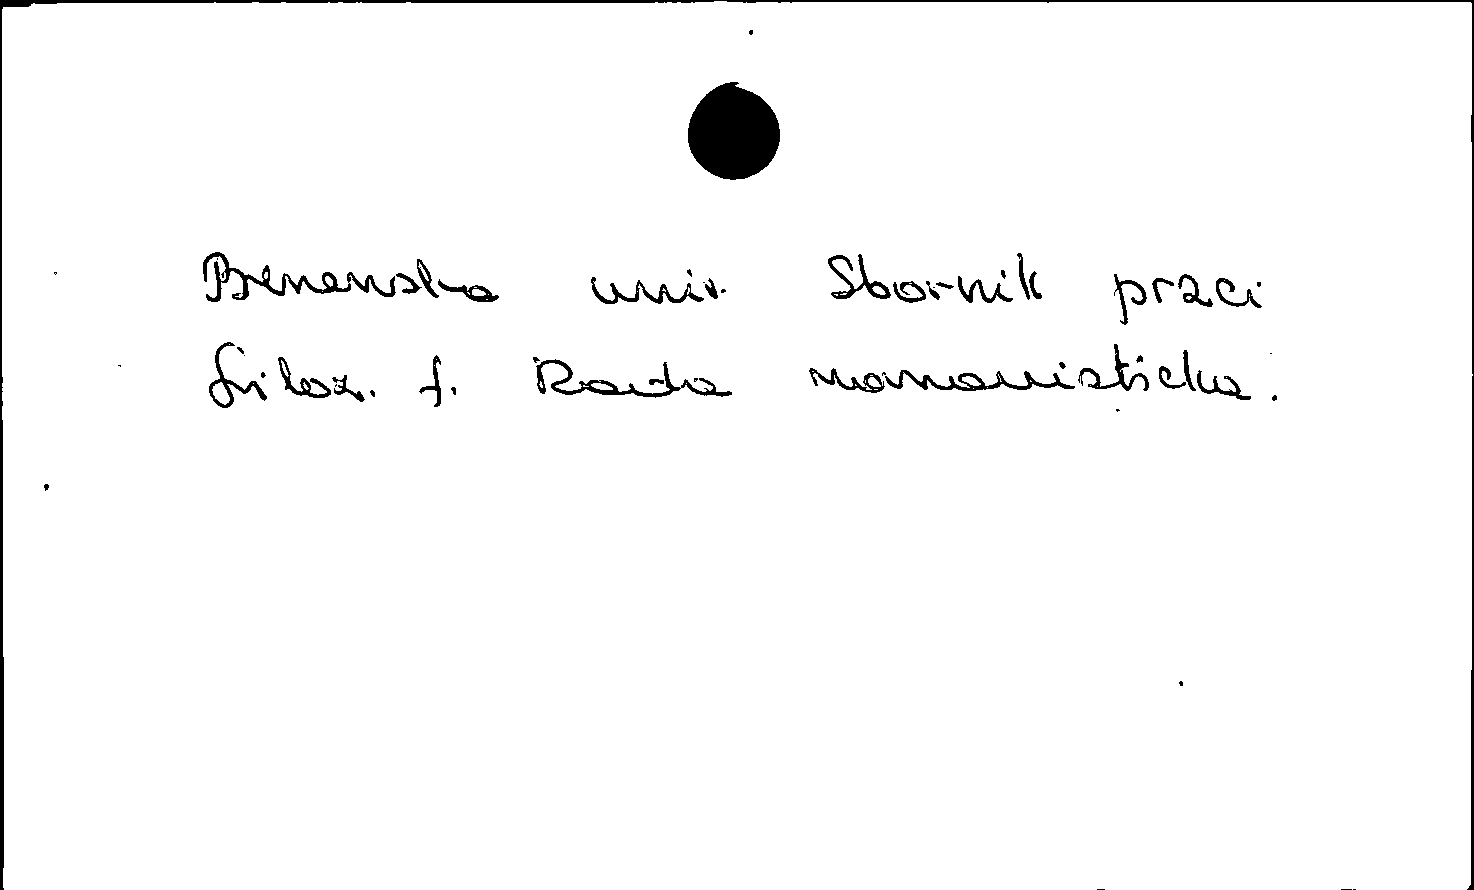 Brnenska univ. Sbornik praci
filoz. f. Rada romanisticka.